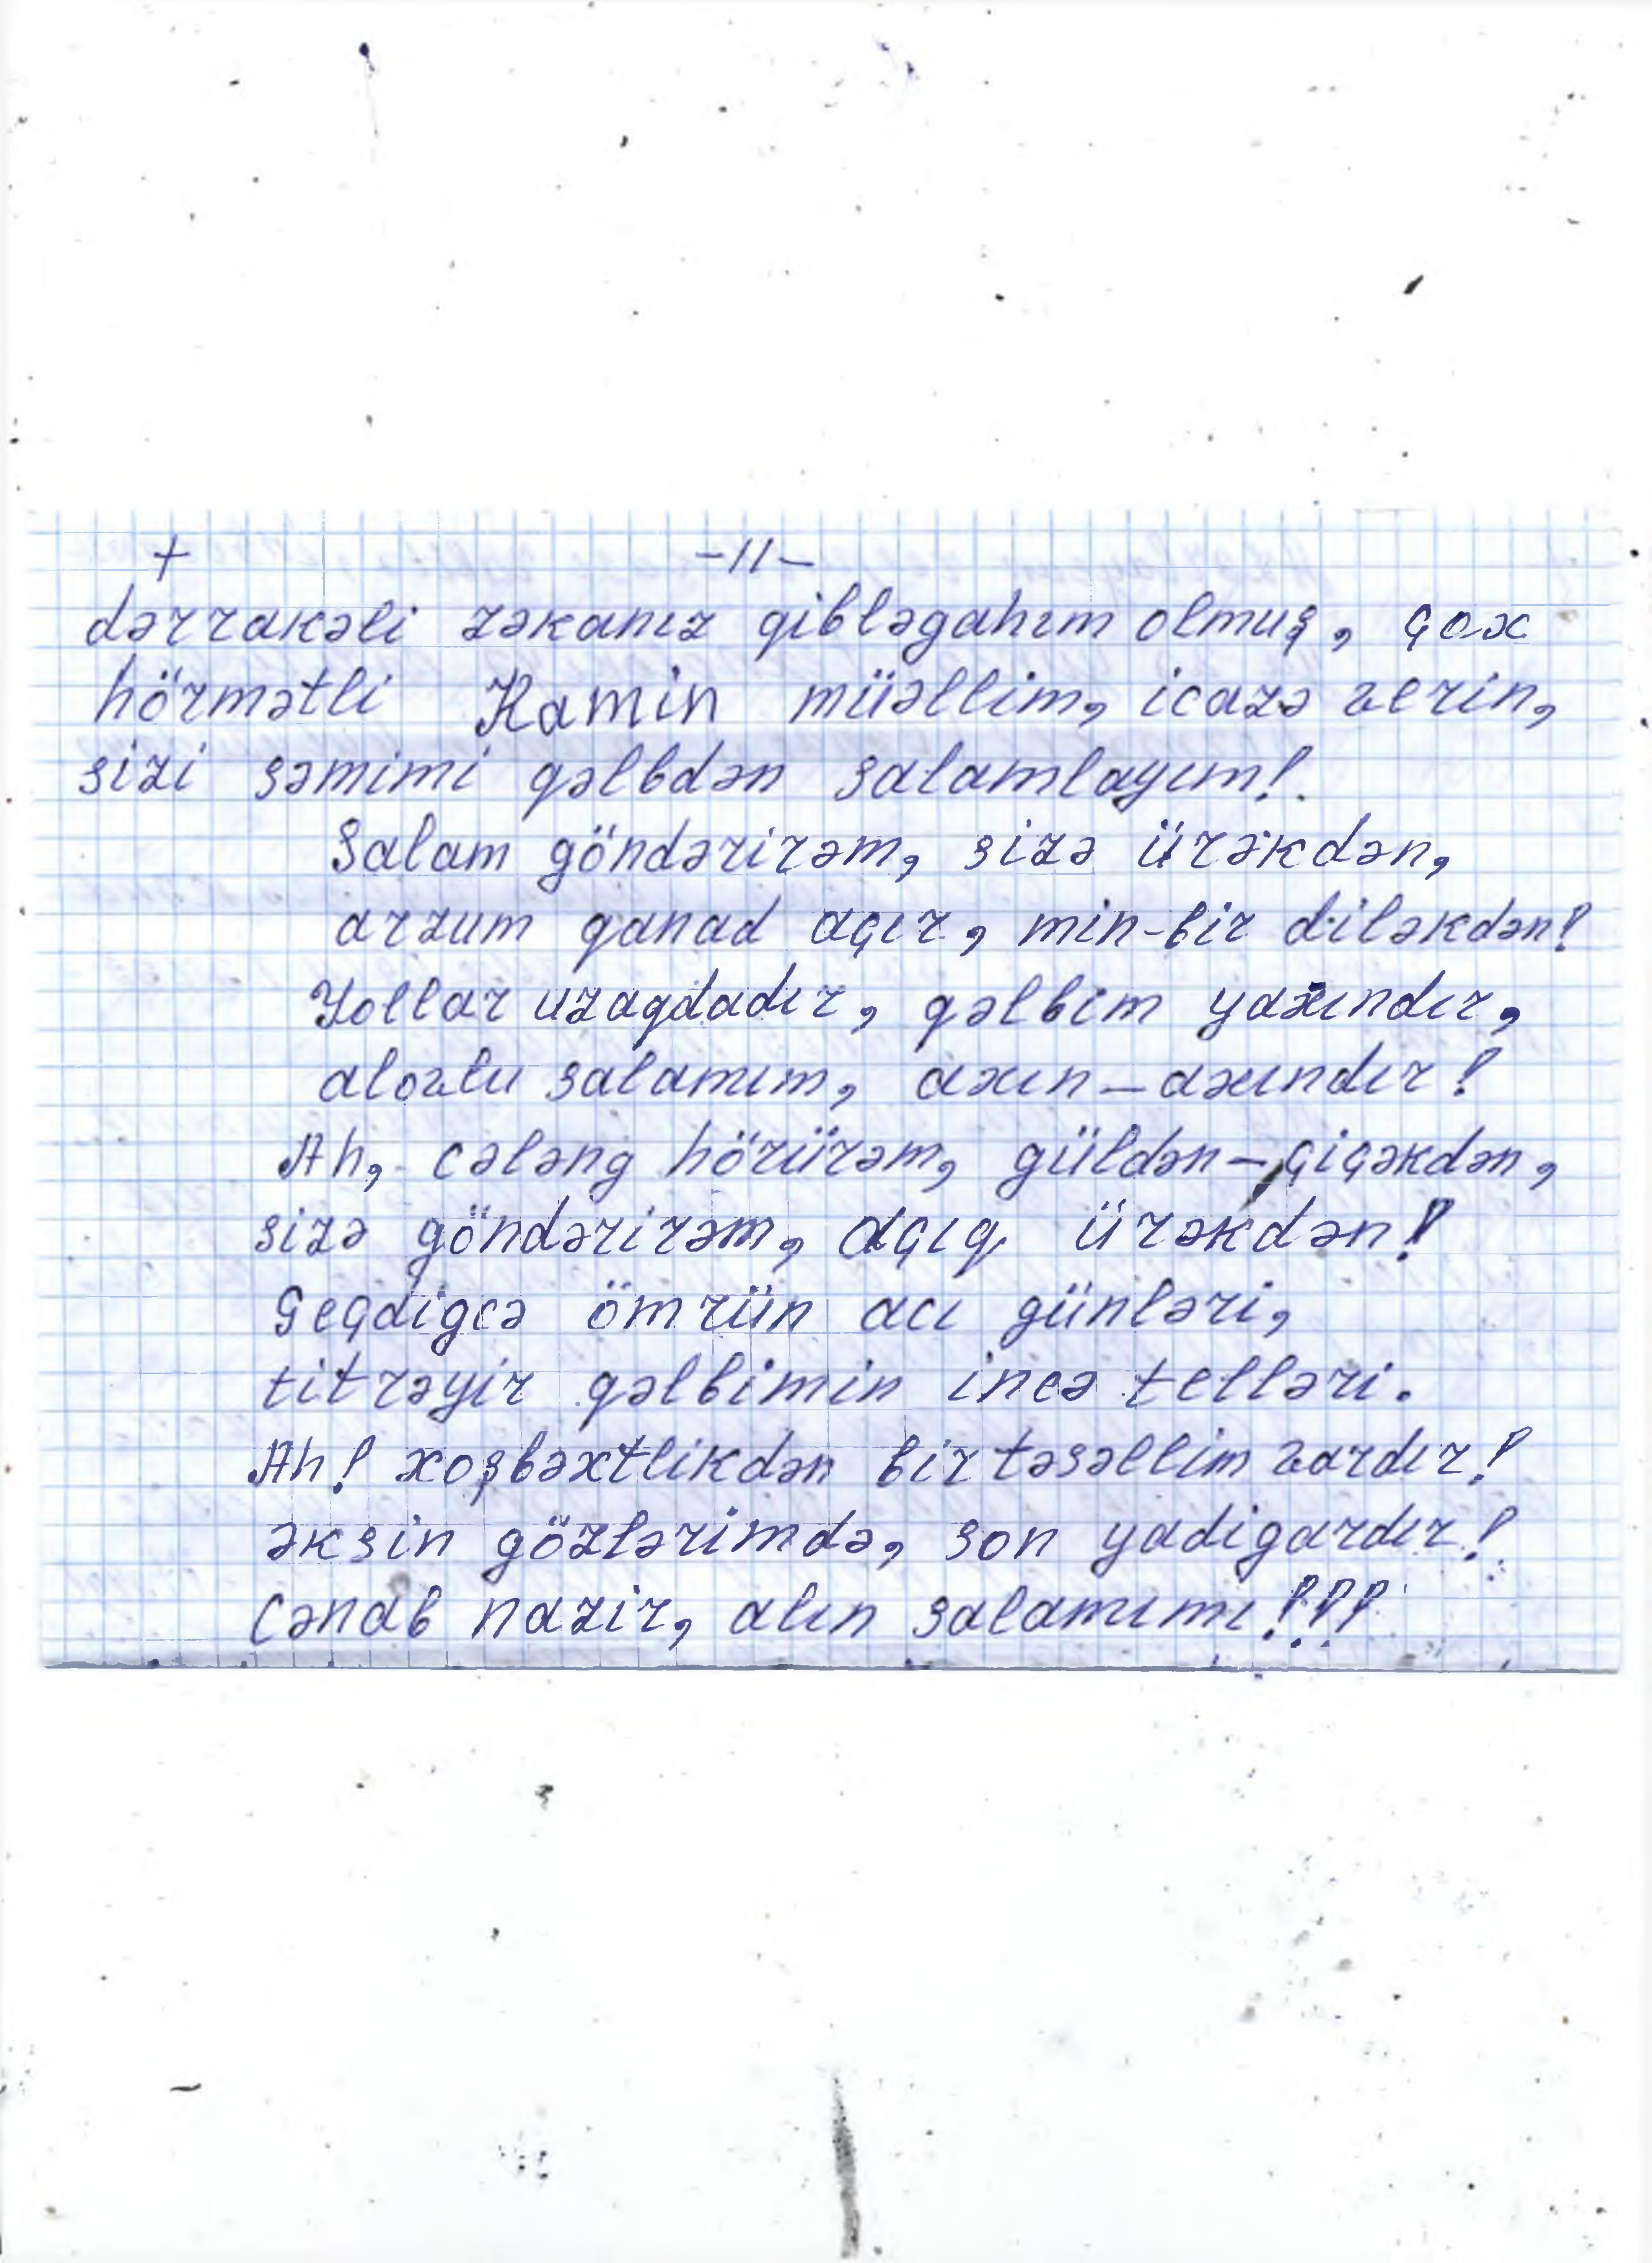 + -11-
dərrakəli zəkanız qibləgahım olmuş, çox
hörmətli Kamin müəllim, icazə verin,
sizi səmimi qəlbdən salamlayım!
Salam göndərirəm, sizə ürəkdən,
arzum qanad açır, min-bir diləkdən!
Yollar uzaqdadır, qəlbim yaxındır,
alovlu salamım, axın-axındır!
Ah, cələng hörürəm, güldən-çiçəkdən,
sizə göndərirəm, açıq ürəkdən!
Geçdigcə ömrün acı günləri,
titrəyir qəlbimin incə telləri.
Ah! xoşbəxtlikdən bir təsəllim vardır!
əksin gözlərimdə, son yadigardır!
Cənab nazir, alın salamımı!!!